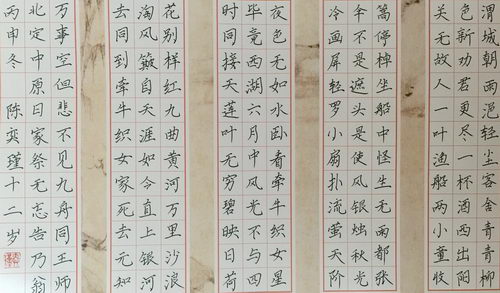 渭城朝雨浥轻尘客舍青青柳
色新劝君更尽一杯酒西出阳
关无故人一叶渔船两小童收
篙停棹坐船中怪生无雨都张
伞不是遮头是使风银烛秋光
冷画屏轻罗小扇扑流萤天阶
夜色凉如水卧看牵牛织女星
毕竟西湖六月中风光不与四
时同接天莲叶无穷碧映日荷
花别样红九曲黄河万里沙浪
淘风簸自天涯如今直上银河
去同到牵牛织女家死去元知
万事空但悲不见九州同王师
北定中原日家祭无忘告乃翁
丙申冬 陈奕瑾十二岁